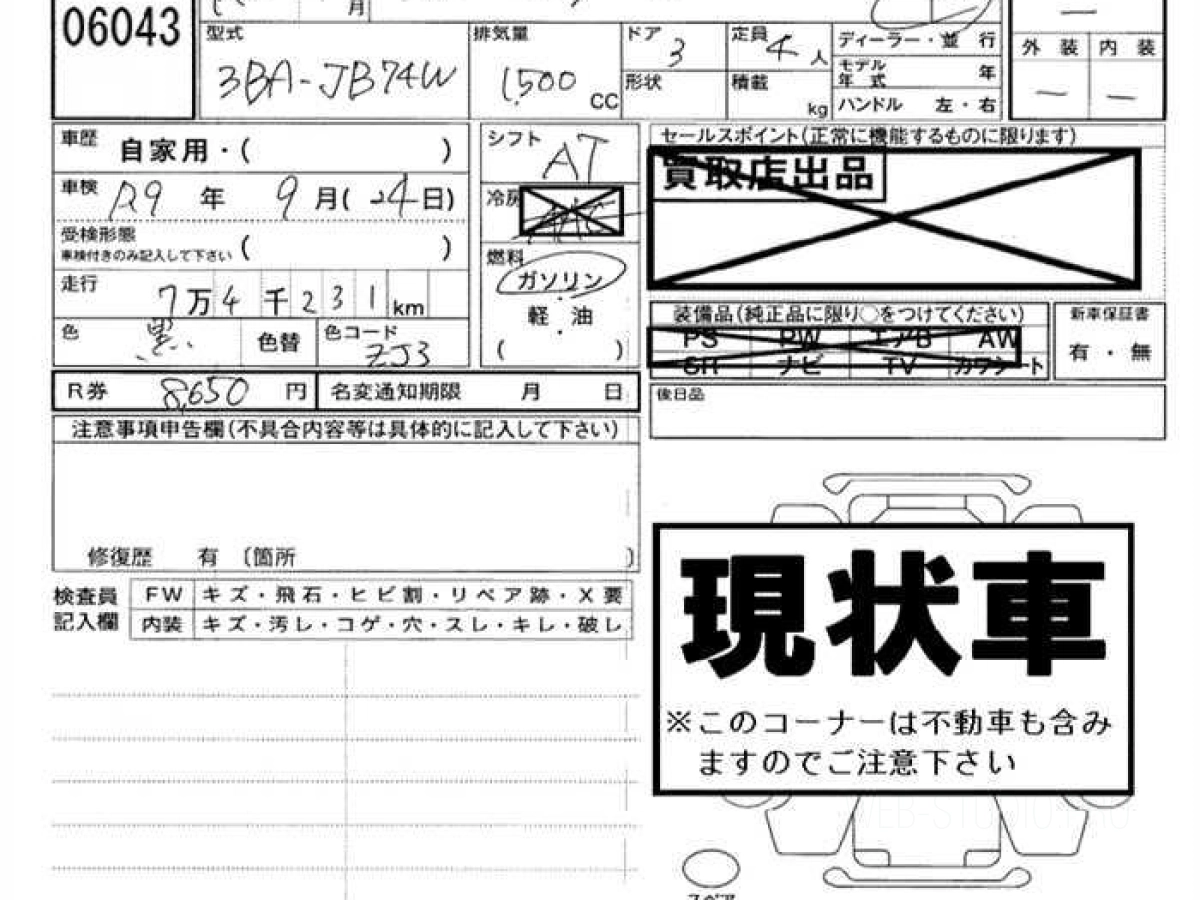 06043
月
型式
3BA-JB74W
排気量
1,500 CC
ドア
3
定員
4 人
形状
積載
kg
ディーラー・並 行
モデル
年 式 年
ハンドル 左・右
外 装 内 装
— —
車歴 自家用・( )
車検 R9 年 9月(24日)
受検形態
車検付きのみ記入して下さい ( )
走行 7万4千231km
色 黒 色替
色コード
ZJ3
シフト
AT
冷房
AAC
燃料
ガソリン
・
軽 油
・
( )
セールスポイント(正常に機能するものに限ります)
買取店出品
装備品(純正品に限り○をつけてください)
PS PW エアB AW
SR ナビ TV カワシート
新車保証書
有・無
R券 8,650 円
名変通知期限 月 日
後日品
注意事項申告欄(不具合内容等は具体的に記入して下さい)
修復歴 有 〔箇所 〕
検査員
記入欄
FW キズ・飛石・ヒビ割・リペア跡・X要
内装 キズ・汚レ・コゲ・穴・スレ・キレ・破レ
現状車
※このコーナーは不動車も含み
ますのでご注意下さい
スペア